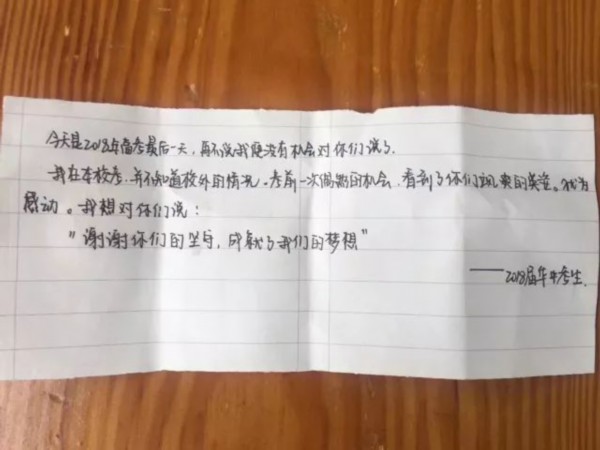 今天是2018年高考最后一天，再不说我便没有机会对你们说了.
我在本校考.并不知道校外的情况.考前一次偶然的机会.看到了你们执勤的英姿。我为
感动。我想对你们说：
"谢谢你们的坚守，成就了我们的梦想"
——2018届华中考生.